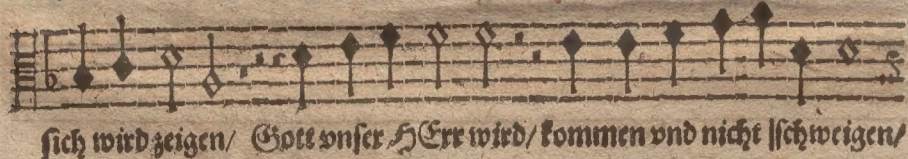 sich wird zeigen/ Gott vnser HErr wird/ kommen vnd nicht schweigen/